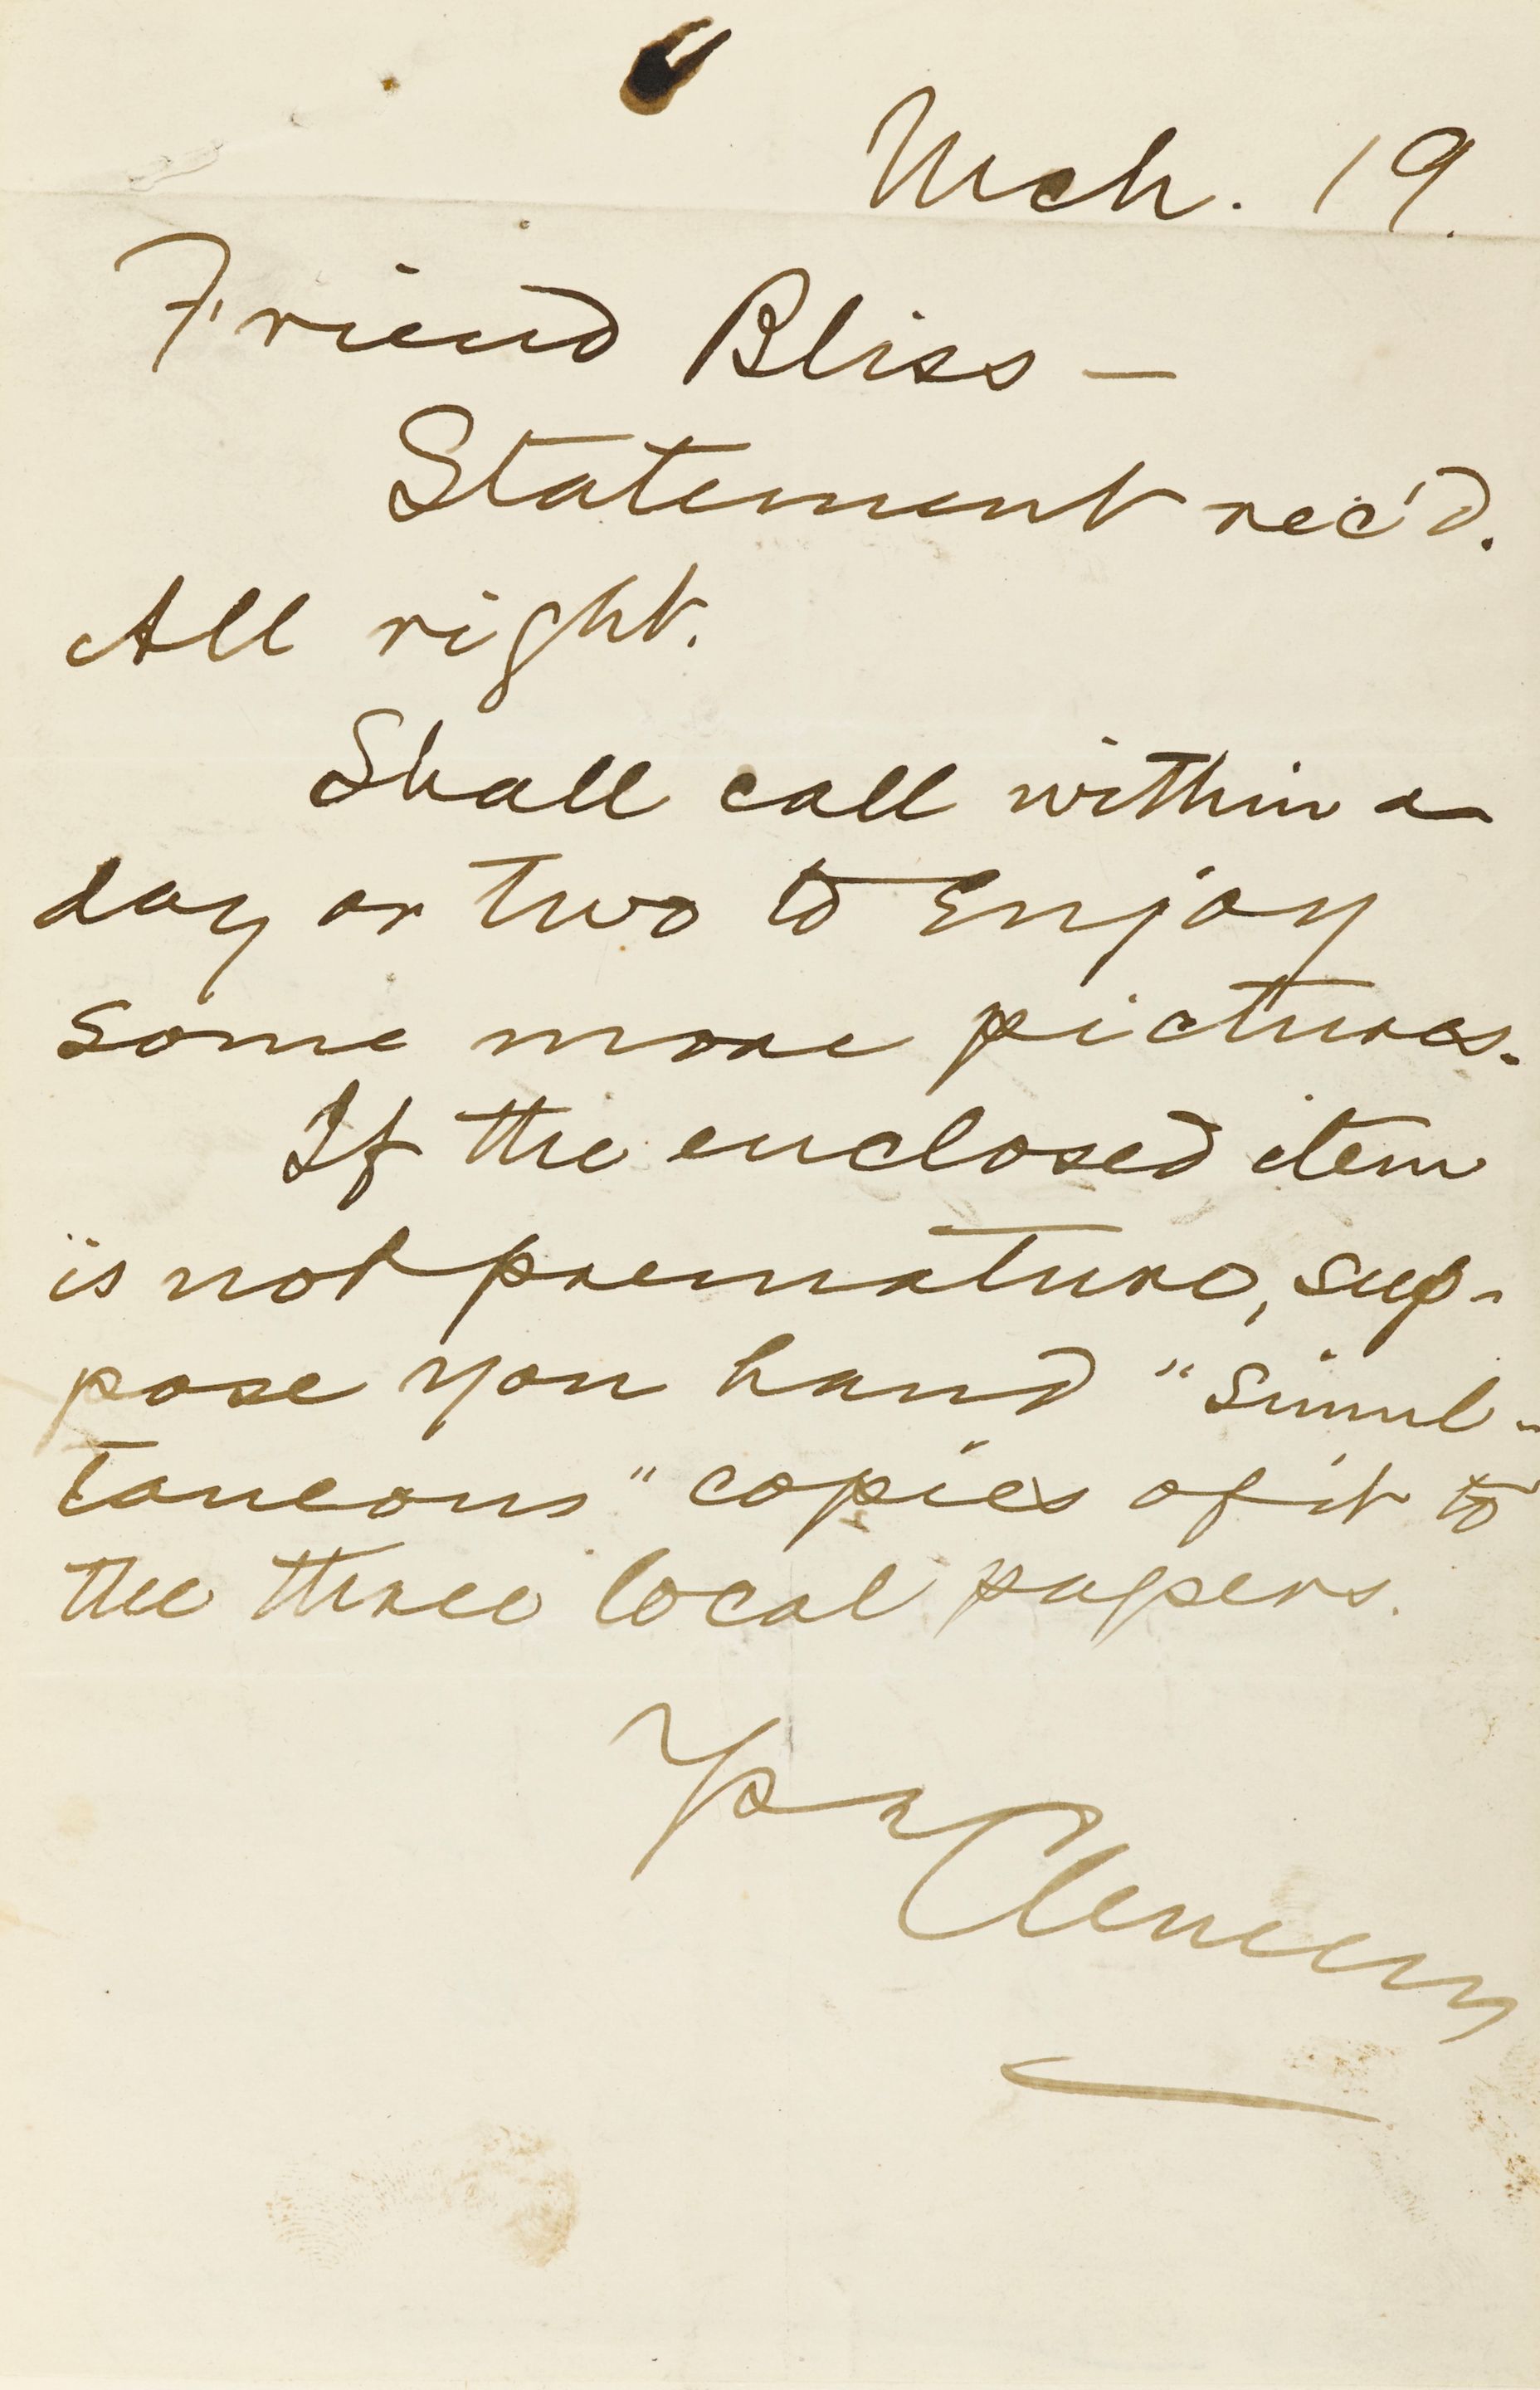 Mch. 19.
Friend Bliss —
Statement rec'd.
All right.
Shall call within a
day or two to enjoy
some more pictures.
If the enclosed item
is not premature, sup-
pose you hand "simul-
taneous" copies of it to
the three local papers.
Yrs
Clemens